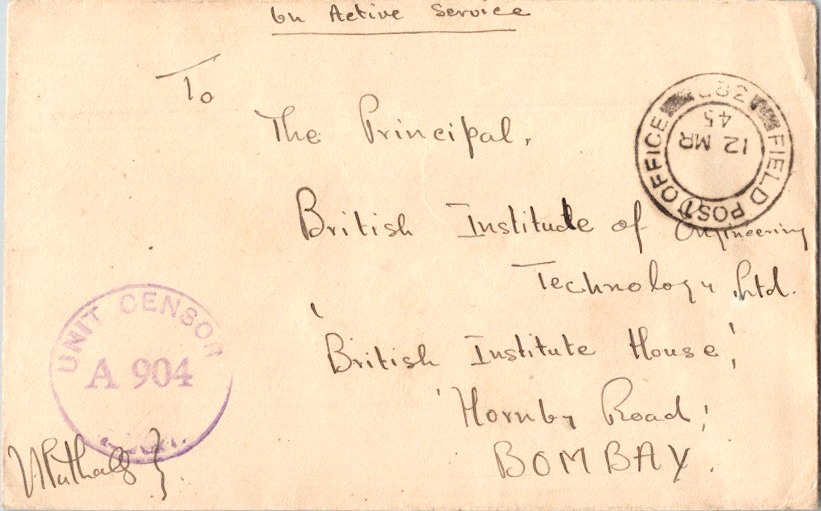 On Active Service
To
The Principal,
British Institute of Engineering
Technology Ltd.
'British Institute House,'
'Hornby Road,'
BOMBAY.
FIELD POST OFFICE
12 MR
45
UNIT CENSOR
A 904